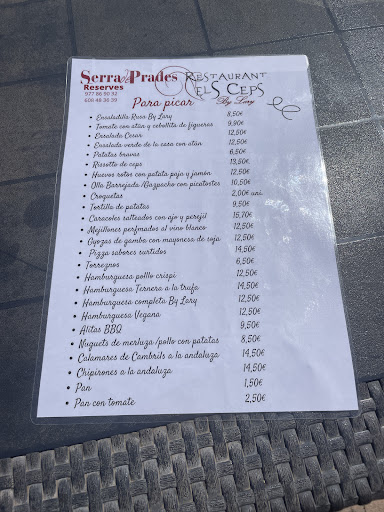 Serra de Prades
Reserves
977 86 90 32
609 48 36 39
RESTAURANT
ELS CEPS
By Lary
Para picar
• Ensaladilla Rusa By Lary 8,50€
• Tomate con atún y cebollita de figueres 9,90€
• Ensalada Cesar 12,50€
• Ensalada verde de la casa con atún 12,50€
• Patatas bravas 6,50€
• Rissotto de ceps 13,50€
• Huevos rotos con patata paja y jamón 12,50€
• Olla Barrejada/Gazpacho con picatostes 10,50€
• Croquetas 2,00€ uni.
• Tortilla de patatas 9,50€
• Caracoles salteados con ajo y perejil 15,70€
• Mejillones perfmados al vino blanco 12,50€
• Gyozas de gamba con mayonera de soja 12,50€
• Pizza sabores surtidos 14,50€
• Torreznos 6,50€
• Hamburguesa polllo crispi 12,50€
• Hamburguesa Ternera a la trufa 14,50€
• Hamburguesa completa By Lary 12,50€
• Hamburguesa Vegana 12,50€
• Alitas BBQ 9,50€
• Nuguets de merluza/pollo con patatas 8,50€
• Calamares de Cambrils a la andaluza 14,50€
• Chipirones a la andaluza 14,50€
• Pan 1,50€
• Pan con tomate 2,50€